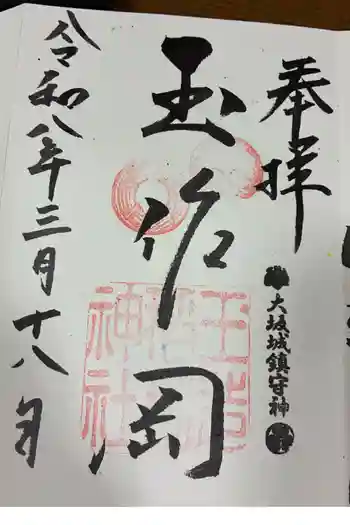 奉拝
大坂城鎮守神
玉作岡
玉造
稲荷
神社
令和八年三月十八日